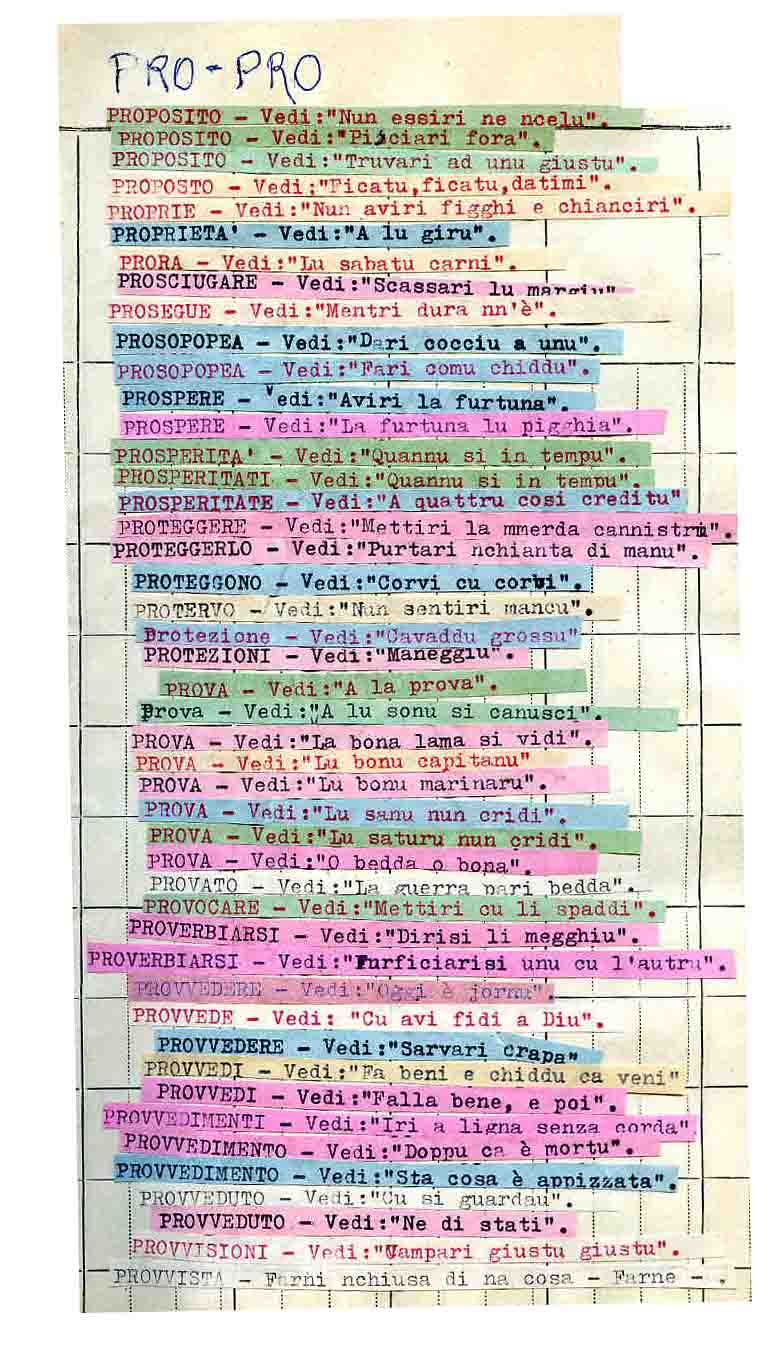 PRO-PRO
PROPOSITO - Vedi:"Nun essiri ne ncelu".
PROPOSITO - Vedi:"Pisciari fora".
PROPOSITO - Vedi:"Truvari ad unu giustu".
PROPOSTO - Vedi:"Ficatu,ficatu,datimi".
PROPRIE - Vedi:"Nun aviri figghi e chianciri".
PROPRIETA' - Vedi:"A lu giru".
PRORA - Vedi:"Lu sabatu carni".
PROSCIUGARE - Vedi:"Scassari lu margiu"
PROSEGUE - Vedi:"Mentri dura nn'è".
PROSOPOPEA - Vedi:"Dari cocciu a unu".
PROSOPOPEA - Vedi:"Fari comu chiddu".
PROSPERE - Vedi:"Aviri la furtuna".
PROSPERE - Vedi:"La furtuna lu pigghia".
PROSPERITA' - Vedi:"Quannu si in tempu".
PROSPERITATI - Vedi:"Quannu si in tempu".
PROSPERITATE - Vedi:"A quattru cosi creditu"
PROTEGGERE - Vedi:"Mettiri la mmerda cannistru".
PROTEGGERLO - Vedi:"Purtari nchianta di manu".
PROTEGGONO - Vedi:"Corvi cu corbi".
PROTERVO - Vedi:"Nun sentiri mancu".
Protezione - Vedi:"Cavaddu grossu"
PROTEZIONI - Vedi:"Maneggiu".
PROVA - Vedi:"A la prova".
Prova - Vedi:"A lu sonu si canusci".
PROVA - Vedi:"La bona lama si vidi".
PROVA - Vedi:"Lu bonu capitanu"
PROVA - Vedi:"Lu bonu marinaru".
PROVA - Vedi:"Lu sanu nun cridi".
PROVA - Vedi:"Lu saturu nun cridi".
PROVA - Vedi:"O bedda o bona".
PROVATO - Vedi:"La guerra pari bedda".
PROVOCARE - Vedi:"Mettiri cu li spaddi".
PROVERBIARSI - Vedi:"Dirisi li megghiu".
PROVERBIARSI - Vedi:"Furficiarisi unu cu l'autru".
PROVVEDERE - Vedi:"Oggi è jornu".
PROVVEDE - Vedi: "Cu avi fidi a Diu".
PROVVEDERE - Vedi:"Sarvari crapa"
PROVVEDI - Vedi:"Fa beni e chiddu ca veni"
PROVVEDI - Vedi:"Falla bene, e poi".
PROVVEDIMENTI - Vedi:"Iri a ligna senza corda"
PROVVEDIMENTO - Vedi:"Doppu ca è mortu".
PROVVEDIMENTO - Vedi:"Sta cosa è appizzata".
PROVVEDUTO - Vedi:"Cu si guardau".
PROVVEDUTO - Vedi:"Ne di stati".
PROVVISIONI - Vedi:"Campari giustu giustu".
PROVVISTA - Farni nchiusa di na cosa - Farne - .